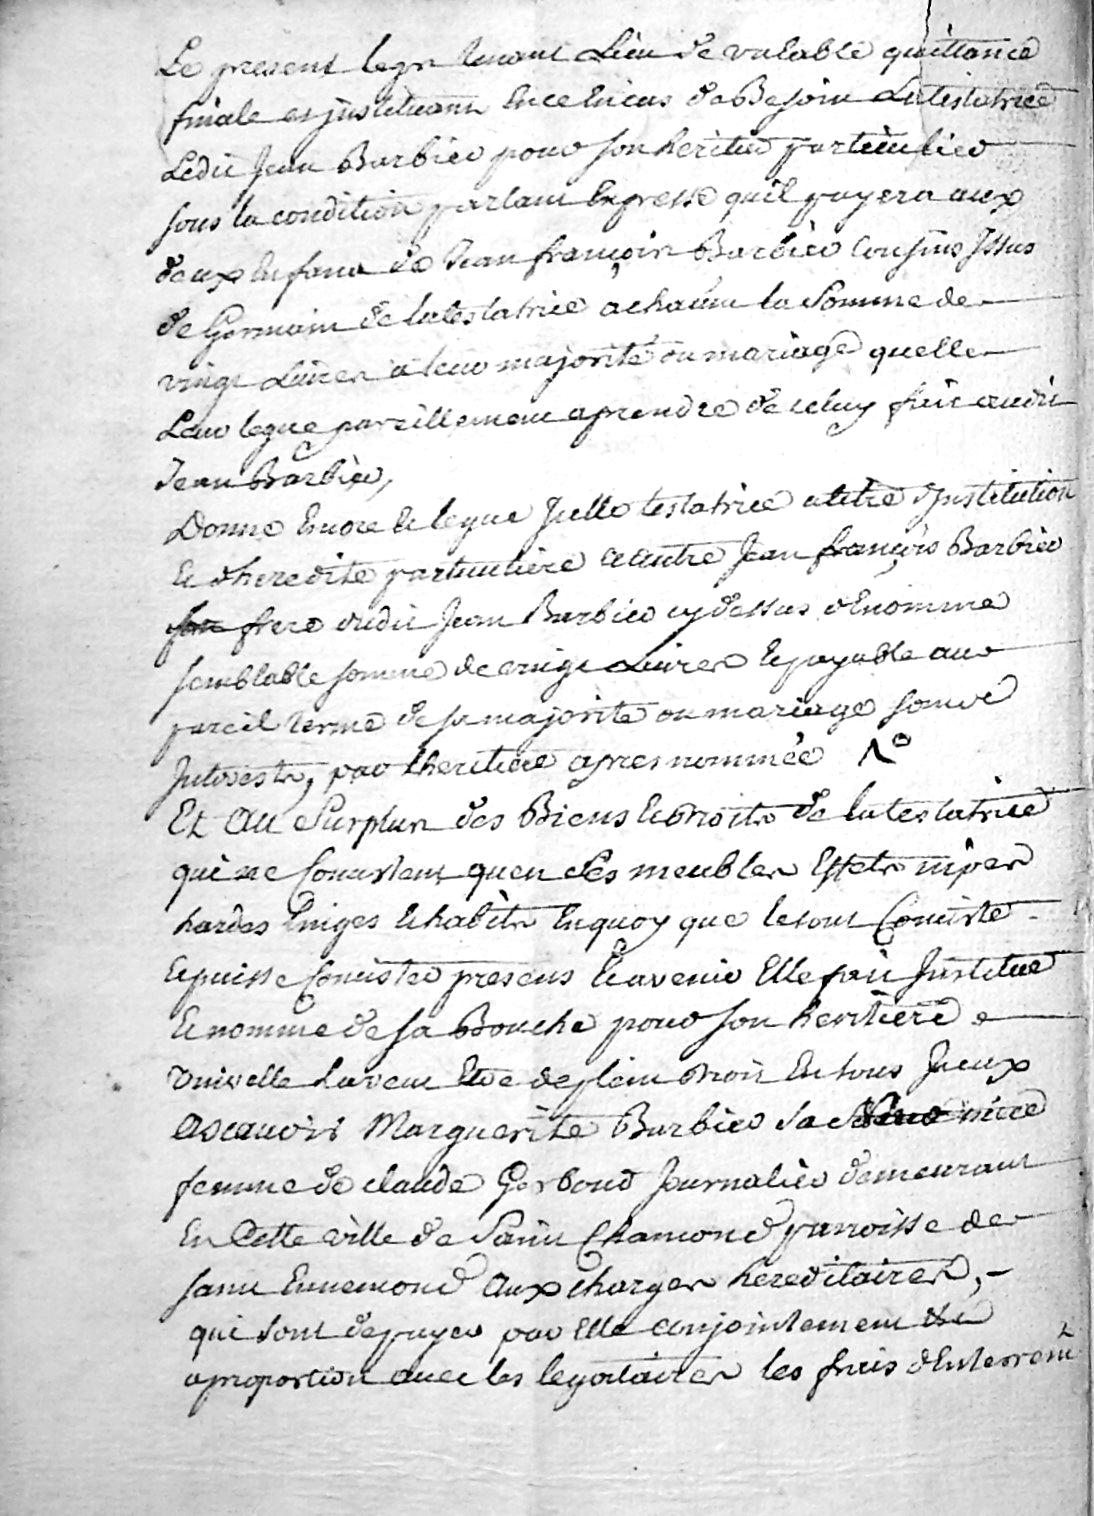 Le present legs tenant Lieu de valable quittance
finale et jnstituant En ce En cas de Besoin La testatrice
Ledit Jean Barbier pour son heritier particulier
sous la condition partant Expresse quil payera aux
deux Enfans de Jean françois Barbier Cousins Jssus
de Germain de la testatrice a chacun la Somme de
vingt Livres a leur majorité ou mariage quelle
Leur legue pareillement a prendre de celuy fait audit
Jean Barbier,
Donne Encore et legue Jcelle testatrice a titre d'Jnstitution
Et d'heredité particuliere a autre Jean françois Barbier
son frere dudit Jean Barbier cy dessus dEnommé
semblable somme de vingt Livres Et payable au
pareil terme de sa majorité ou mariage sans
Jnterests, par l'heritiere apres nommée
Et Au Surplus des Biens Et Droits de la testatrice
qui ne Consistent quen Ses meubles Effets nipes
hardes Linges Et habits En quoy que le tout Consiste
Et puisse Consister presens Et avenir Elle fait Jnstitue
Et nomme de sa Bouche pour son heritiere
Universelle de plein Droit En tous Jceux
Ascavoir Marguerite Barbier sa niece
femme de claude Gerboud Journalier demeurant
En Cette ville de Saint Chamond parroisse de
saint Ennemond Aux charges hereditaires,
qui sont de payer par Elle conjointement Et a
a proportion avec les legataires les frais d'Enterremt